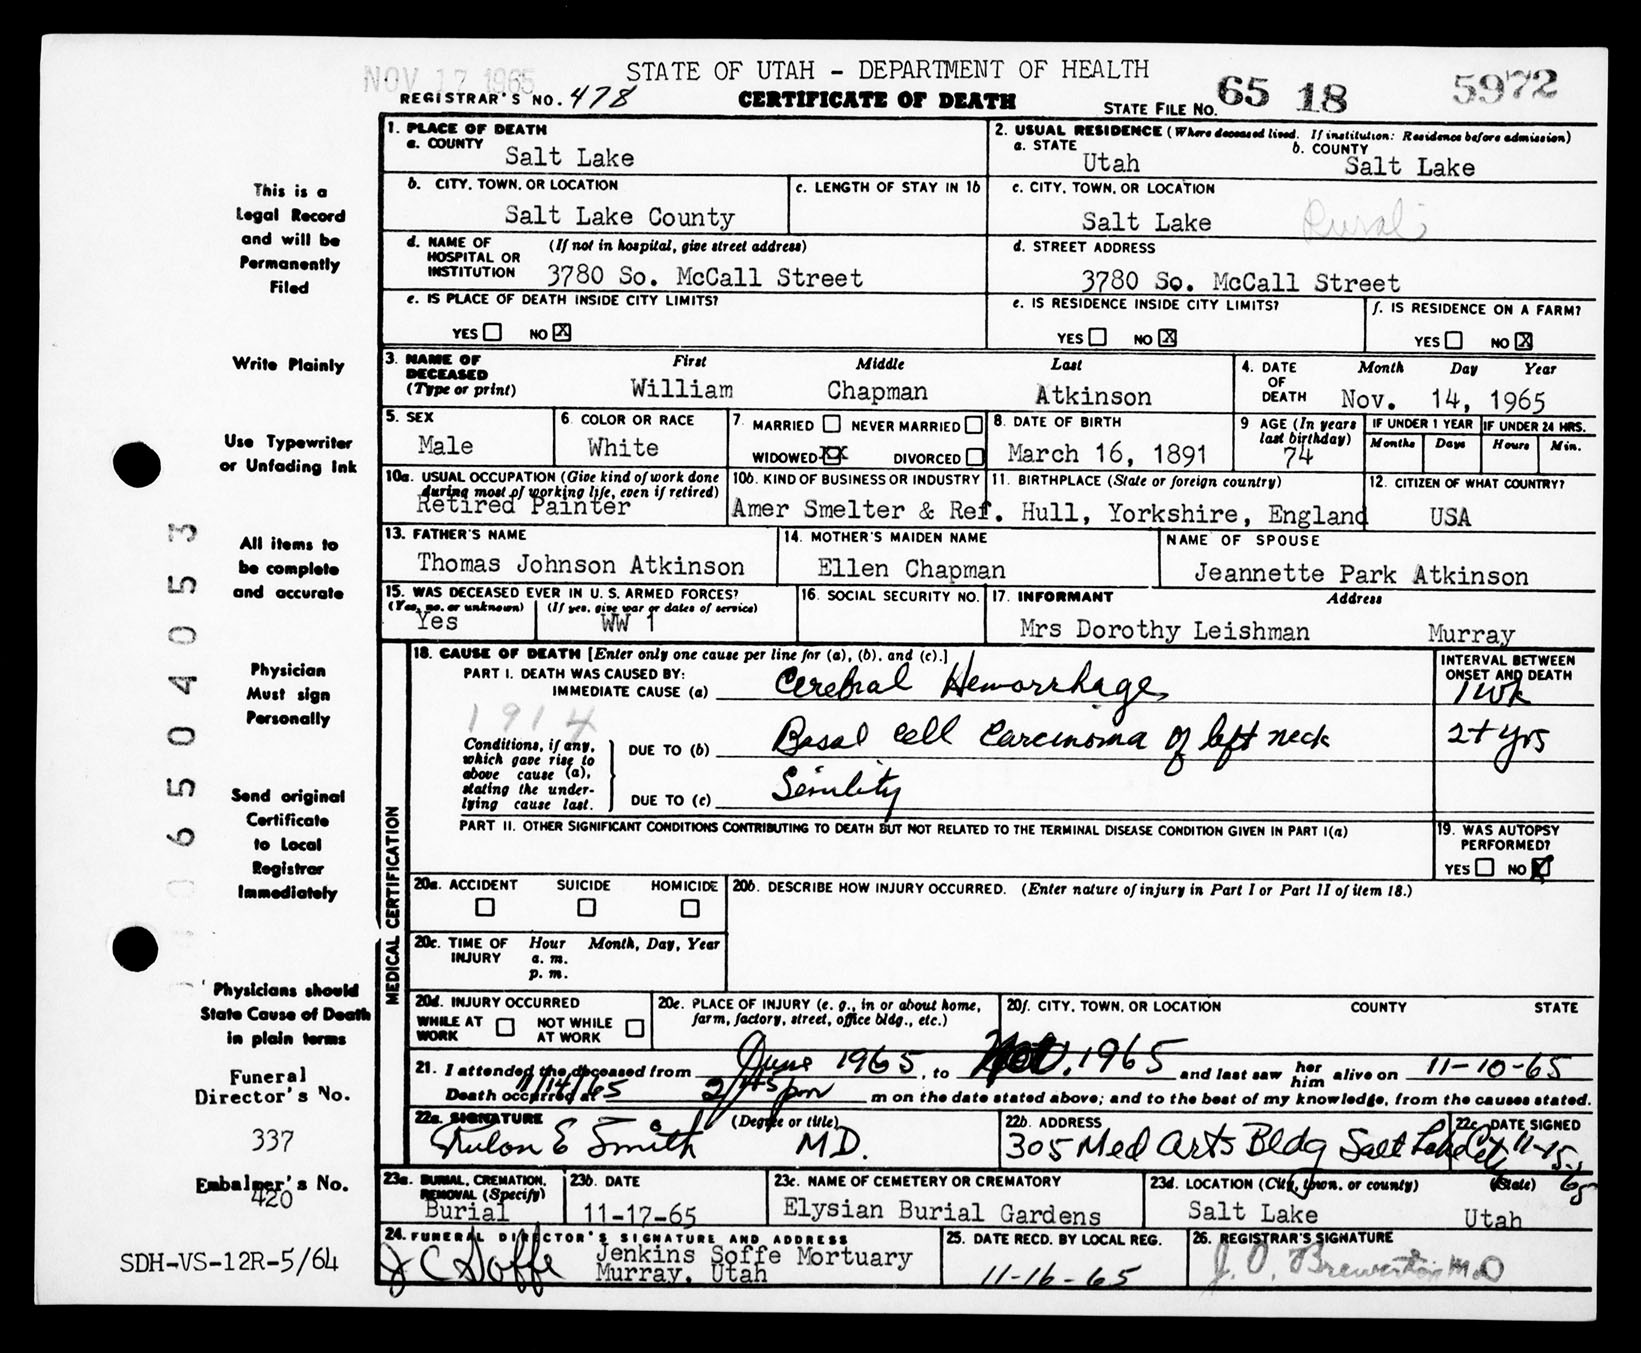 NOV 17 1965
STATE OF UTAH - DEPARTMENT OF HEALTH
REGISTRAR'S NO. 478
CERTIFICATE OF DEATH
STATE FILE NO. 65 18 5972
1. PLACE OF DEATH
a. COUNTY
Salt Lake
2. USUAL RESIDENCE (Where deceased lived. If institution: Residence before admission)
a. STATE
Utah
b. COUNTY
Salt Lake
b. CITY, TOWN, OR LOCATION
Salt Lake County
c. LENGTH OF STAY IN 1b
c. CITY, TOWN, OR LOCATION
Salt Lake Rural
d. NAME OF HOSPITAL OR INSTITUTION
(If not in hospital, give street address)
3780 So. McCall Street
d. STREET ADDRESS
3780 So. McCall Street
e. IS PLACE OF DEATH INSIDE CITY LIMITS?
YES NO X
e. IS RESIDENCE INSIDE CITY LIMITS?
YES NO X
f. IS RESIDENCE ON A FARM?
YES NO X
3. NAME OF DECEASED (Type or print)
First Middle Last
William Chapman Atkinson
4. DATE OF DEATH
Month Day Year
Nov. 14, 1965
5. SEX
Male
6. COLOR OR RACE
White
7. MARRIED NEVER MARRIED
WIDOWED XX DIVORCED
8. DATE OF BIRTH
March 16, 1891
9 AGE (In years last birthday)
74
IF UNDER 1 YEAR
Months Days
IF UNDER 24 HRS.
Hours Min.
10a. USUAL OCCUPATION (Give kind of work done during most of working life, even if retired)
Retired Painter
10b. KIND OF BUSINESS OR INDUSTRY
Amer Smelter & Ref.
11. BIRTHPLACE (State or foreign country)
Hull, Yorkshire, England
12. CITIZEN OF WHAT COUNTRY?
USA
13. FATHER'S NAME
Thomas Johnson Atkinson
14. MOTHER'S MAIDEN NAME
Ellen Chapman
NAME OF SPOUSE
Jeannette Park Atkinson
15. WAS DECEASED EVER IN U. S. ARMED FORCES?
(Yes, no, or unknown) (If yes, give war or dates of service)
Yes WW 1
16. SOCIAL SECURITY NO.
17. INFORMANT Address
Mrs Dorothy Leishman Murray
MEDICAL CERTIFICATION
18. CAUSE OF DEATH [Enter only one cause per line for (a), (b), and (c).]
PART I. DEATH WAS CAUSED BY:
IMMEDIATE CAUSE (a) Cerebral Hemorrhage
INTERVAL BETWEEN ONSET AND DEATH
1 wk
1914
Conditions, if any, which gave rise to above cause (a), stating the underlying cause last.
DUE TO (b) Basal cell carcinoma of left neck
2+ yrs
DUE TO (c) Senility
PART II. OTHER SIGNIFICANT CONDITIONS CONTRIBUTING TO DEATH BUT NOT RELATED TO THE TERMINAL DISEASE CONDITION GIVEN IN PART I(a)
19. WAS AUTOPSY PERFORMED?
YES NO X
20a. ACCIDENT SUICIDE HOMICIDE
20b. DESCRIBE HOW INJURY OCCURRED. (Enter nature of injury in Part I or Part II of item 18.)
20c. TIME OF INJURY
Hour Month, Day, Year
a. m.
p. m.
20d. INJURY OCCURRED
WHILE AT WORK NOT WHILE AT WORK
20e. PLACE OF INJURY (e. g., in or about home, farm, factory, street, office bldg., etc.)
20f. CITY, TOWN, OR LOCATION COUNTY STATE
21. I attended the deceased from June 1965, to Nov. 1965 and last saw her him alive on 11-10-65
Death occurred at 11/14/65 2/45 pm m on the date stated above; and to the best of my knowledge, from the causes stated.
22a. SIGNATURE (Degree or title)
E Smith M.D.
22b. ADDRESS
305 Med Arts Bldg Salt Lake City
22c. DATE SIGNED
11-15-65
23a. BURIAL, CREMATION, REMOVAL (Specify)
Burial
23b. DATE
11-17-65
23c. NAME OF CEMETERY OR CREMATORY
Elysian Burial Gardens
23d. LOCATION (City, town, or county) (State)
Salt Lake Utah
24. FUNERAL DIRECTOR'S SIGNATURE AND ADDRESS
J C Soffe
Jenkins Soffe Mortuary
Murray, Utah
25. DATE RECD. BY LOCAL REG.
11-16-65
26. REGISTRAR'S SIGNATURE
J. O. Brewerton M.D
This is a
Legal Record
and will be
Permanently
Filed
Write Plainly
Use Typewriter
or Unfading Ink
All items to
be complete
and accurate
Physician
Must sign
Personally
Send original
Certificate
to Local
Registrar
Immediately
Physicians should
State Cause of Death
in plain terms
Funeral
Director's No.
337
Embalmer's No.
420
SDH-VS-12R-5/64
0 6 5 0 4 0 5 3